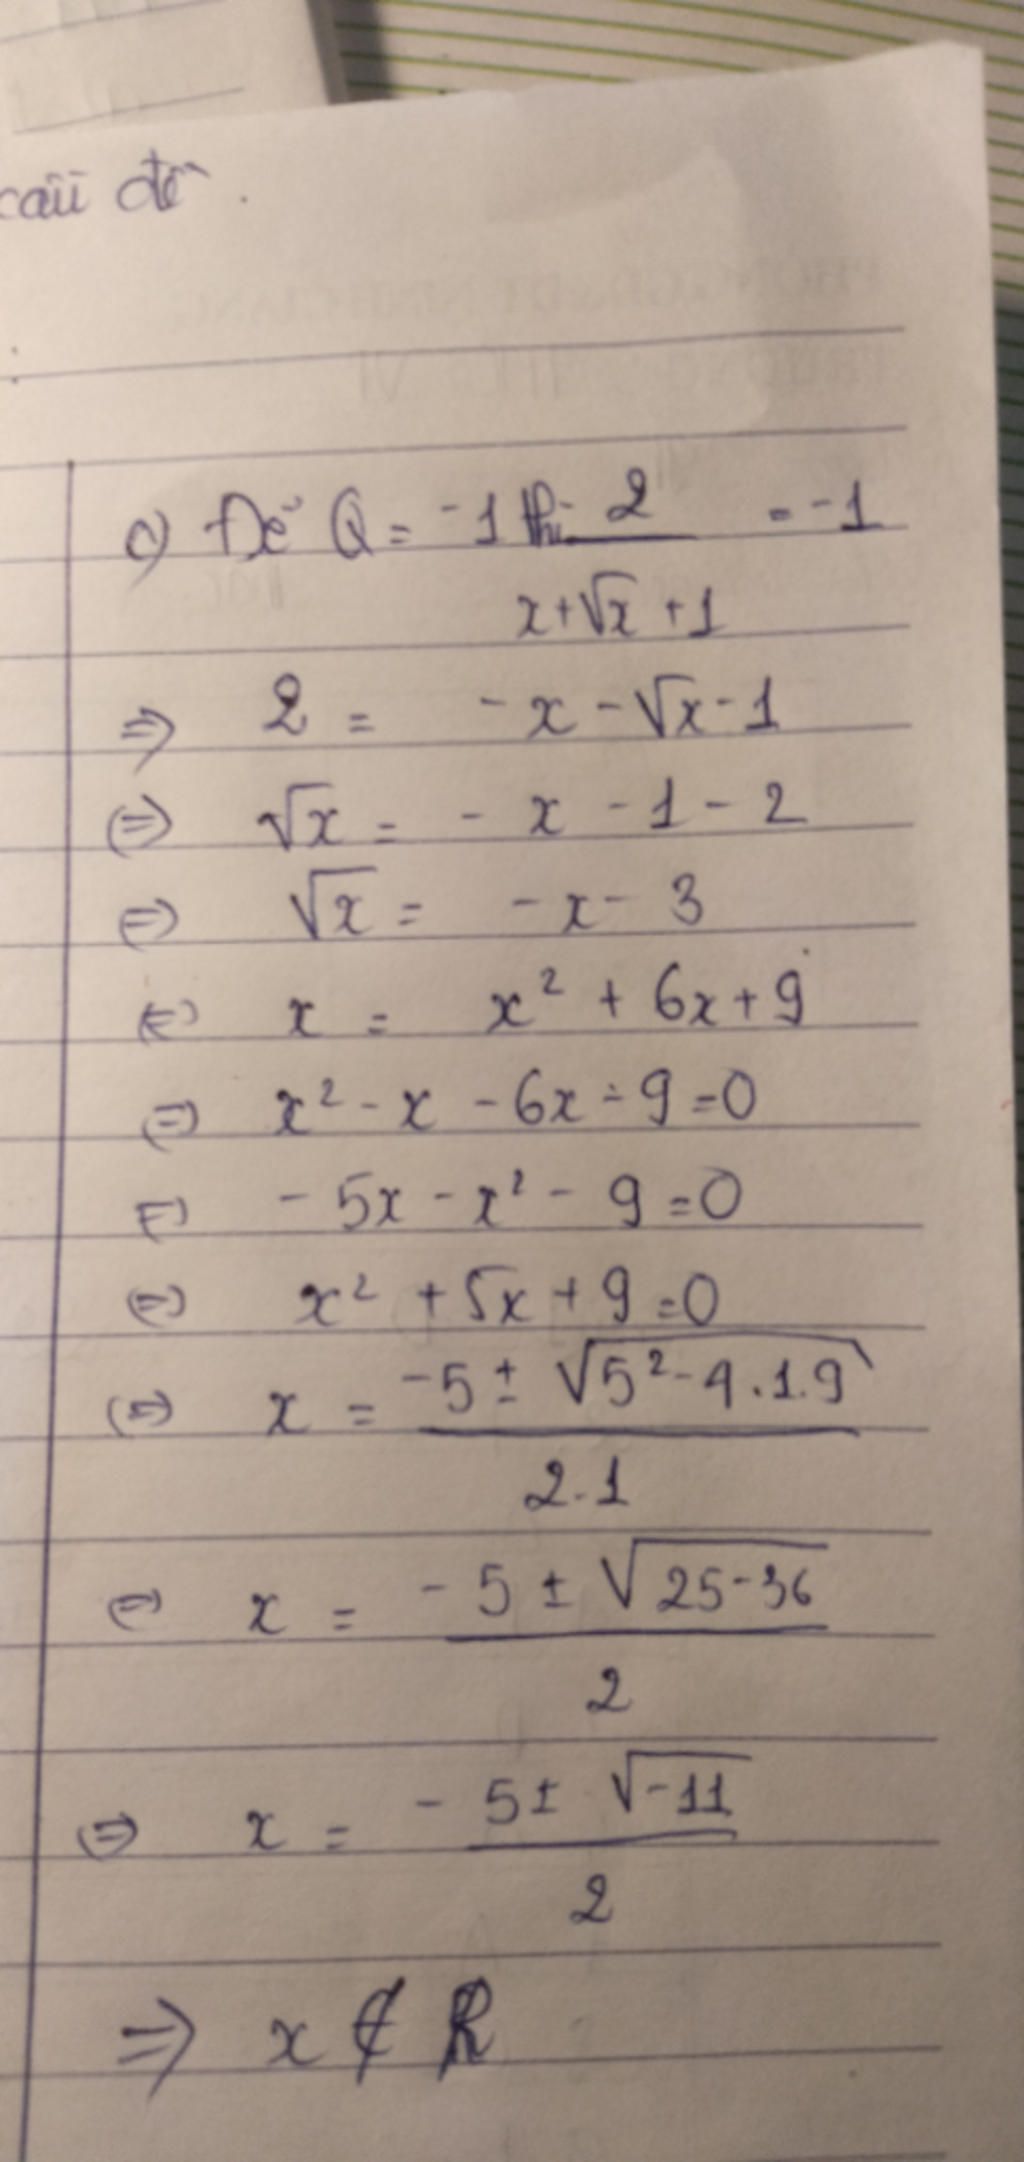 câu đố.
c) Để Q = -1 thì 2/(x+√x+1) = -1
=> 2 = -x-√x-1
(=) √x = -x-1-2
(=) √x = -x-3
(=) x = x² + 6x+9
(=) x²-x-6x-9=0
(=) -5x-x²-9=0
(=) x²+5x+9=0
(=) x = (-5 ± √(5²-4.1.9))/(2.1)
(=) x = (-5 ± √(25-36))/2
(=) x = (-5 ± √(-11))/2
=> x ∉ R